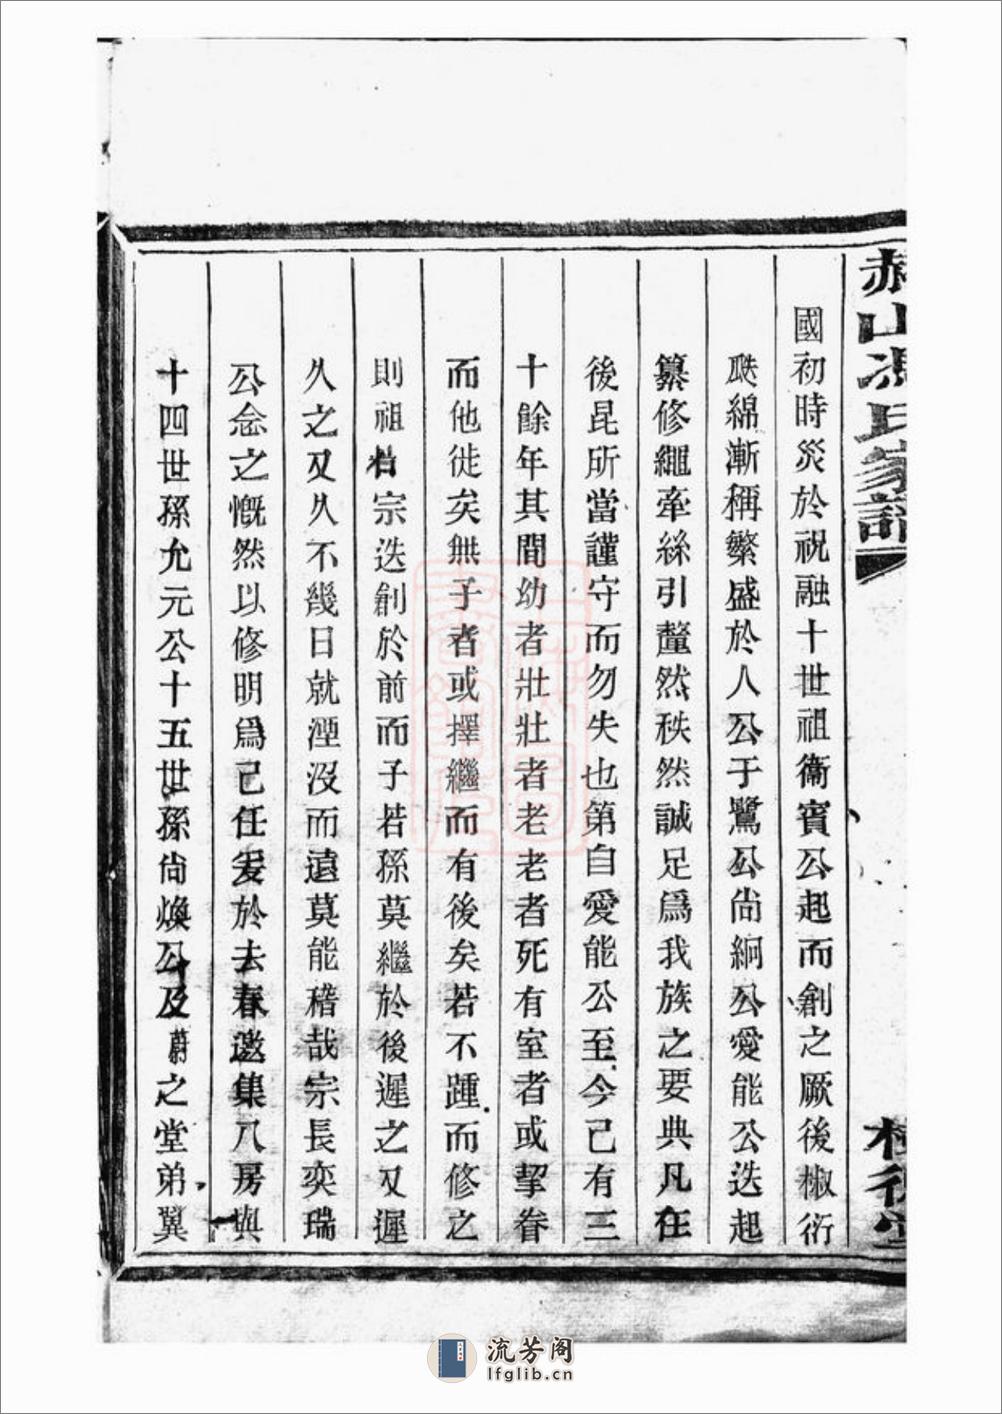 赫山馮氏家譜
國初時災於祝融十世祖衞賓公起而創之厥後椒衍
瓞綿漸稱繁盛於人公于鷺公尙絅公愛能公迭起
纂修繩牽絲引釐然秩然誠足爲我族之要典凡在
後昆所當謹守而勿失也第自愛能公至今已有三
十餘年其間幼者壯壯者老老者死有室者或挈眷
而他徙矣無子者或擇繼而有後矣若不踵而修之
則祖若宗迭創於前而子若孫莫繼於後遲之又遲
久之又久不幾日就湮沒而遠莫能稽哉宗長奕瑞
公念之慨然以修明爲己任爰於去春邀集八房與
十四世孫允元公十五世孫尙煥公及蔚之堂弟翼
流芳阁
lfglib.cn